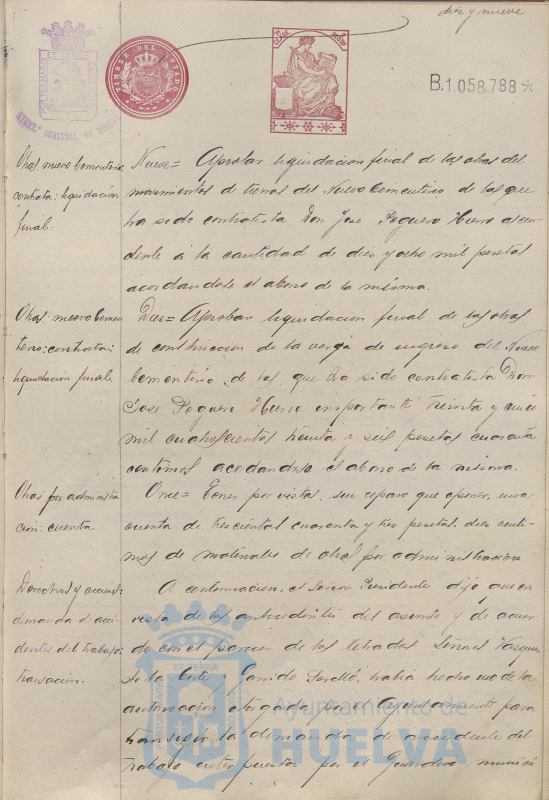 diez y nueve
TIMBRE DEL ESTADO
B.1.058.788*
Obras nuevo Cementerio
contrata: liquidación
final.
Nueve= Aprobar liquidación final de las obras del
movimientos de tierras del Nuevo Cementerio de las que
ha sido contratista Don Jose Poguero Hierro ascen-
dente á la cantidad de diez y ocho mil pesetas
acordandose el abono de la misma.
Obras nuevo Cemen
terio: contrata:
liquidación final.
Diez= Aprobar liquidación final de las obras
de construccion de la verja de ingreso del Nuevo
Cementerio, de las que ha sido contratista Don
Jose Poguero Hierro importante treinta y cinco
mil cuatrocientas treinta y seis pesetas cuarenta
centimos acordandose el abono de la misma.
Obras por administra
cion: cuenta
Once= Tener por vistas, sin reparo que oponer, una
cuenta de trescientas cuarenta y tres pesetas, diez centi-
mos de materiales de obras por administración
Derechos y acciones
demanda de acci
dentes del trabajo:
transación.
A continuacion, el Señor Presidente dijo que en
vista de los antecedentes del asunto y de acuer
do con el parecer de los letrados Señores Vazquez
De la Corte y Garrido Perelló, habia hecho uso de la
autorización otorgada por el Ayuntamiento para
transigir la demanda de accidente del
trabajo interpuesta por el Guardia munici
PORTUS MARIS
ET TERRAE
CUSTODIA
Ayuntamiento de
HUELVA